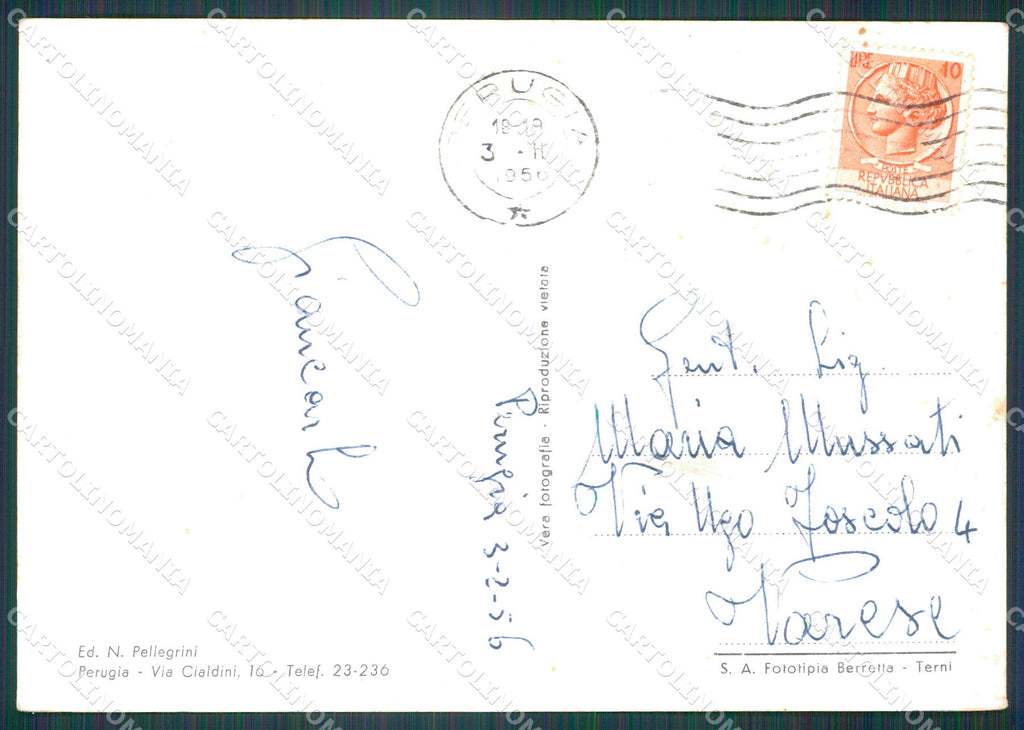 PERUGIA
18-19
3 - II
1956
LIRE 10
POSTE
REPVBBLICA
ITALIANA
Giancarlo
Perugia 3-2-56
Vera fotografia - Riproduzione vietata
Gent. Sig.
Maria Mussati
Via Ugo Foscolo 4
Varese
Ed. N. Pellegrini
Perugia - Via Cialdini, 16 - Telef. 23-236
S. A. Fototipia Berretta - Terni
CARTOLINOMANIA